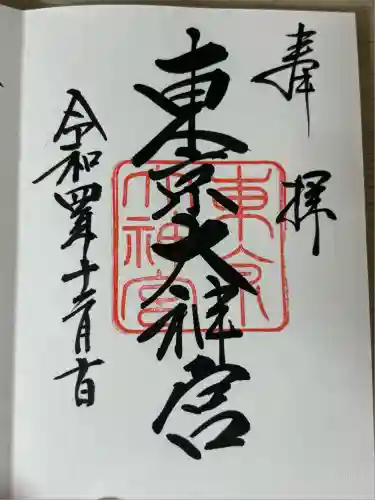 奉拝
東京大神宮
東京大神宮
令和四年十二月十日